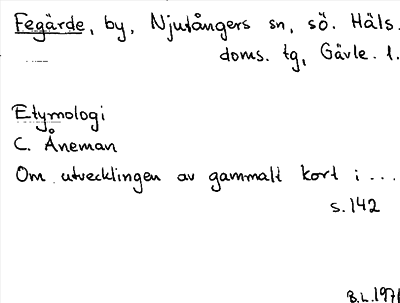 Fegärde, by, Njutångers sn, sö. Häls.
doms. tg, Gävle. l.
Etymologi
C. Åneman
Om utvecklingen av gammalt kort i ...
s. 142
B.L. 197